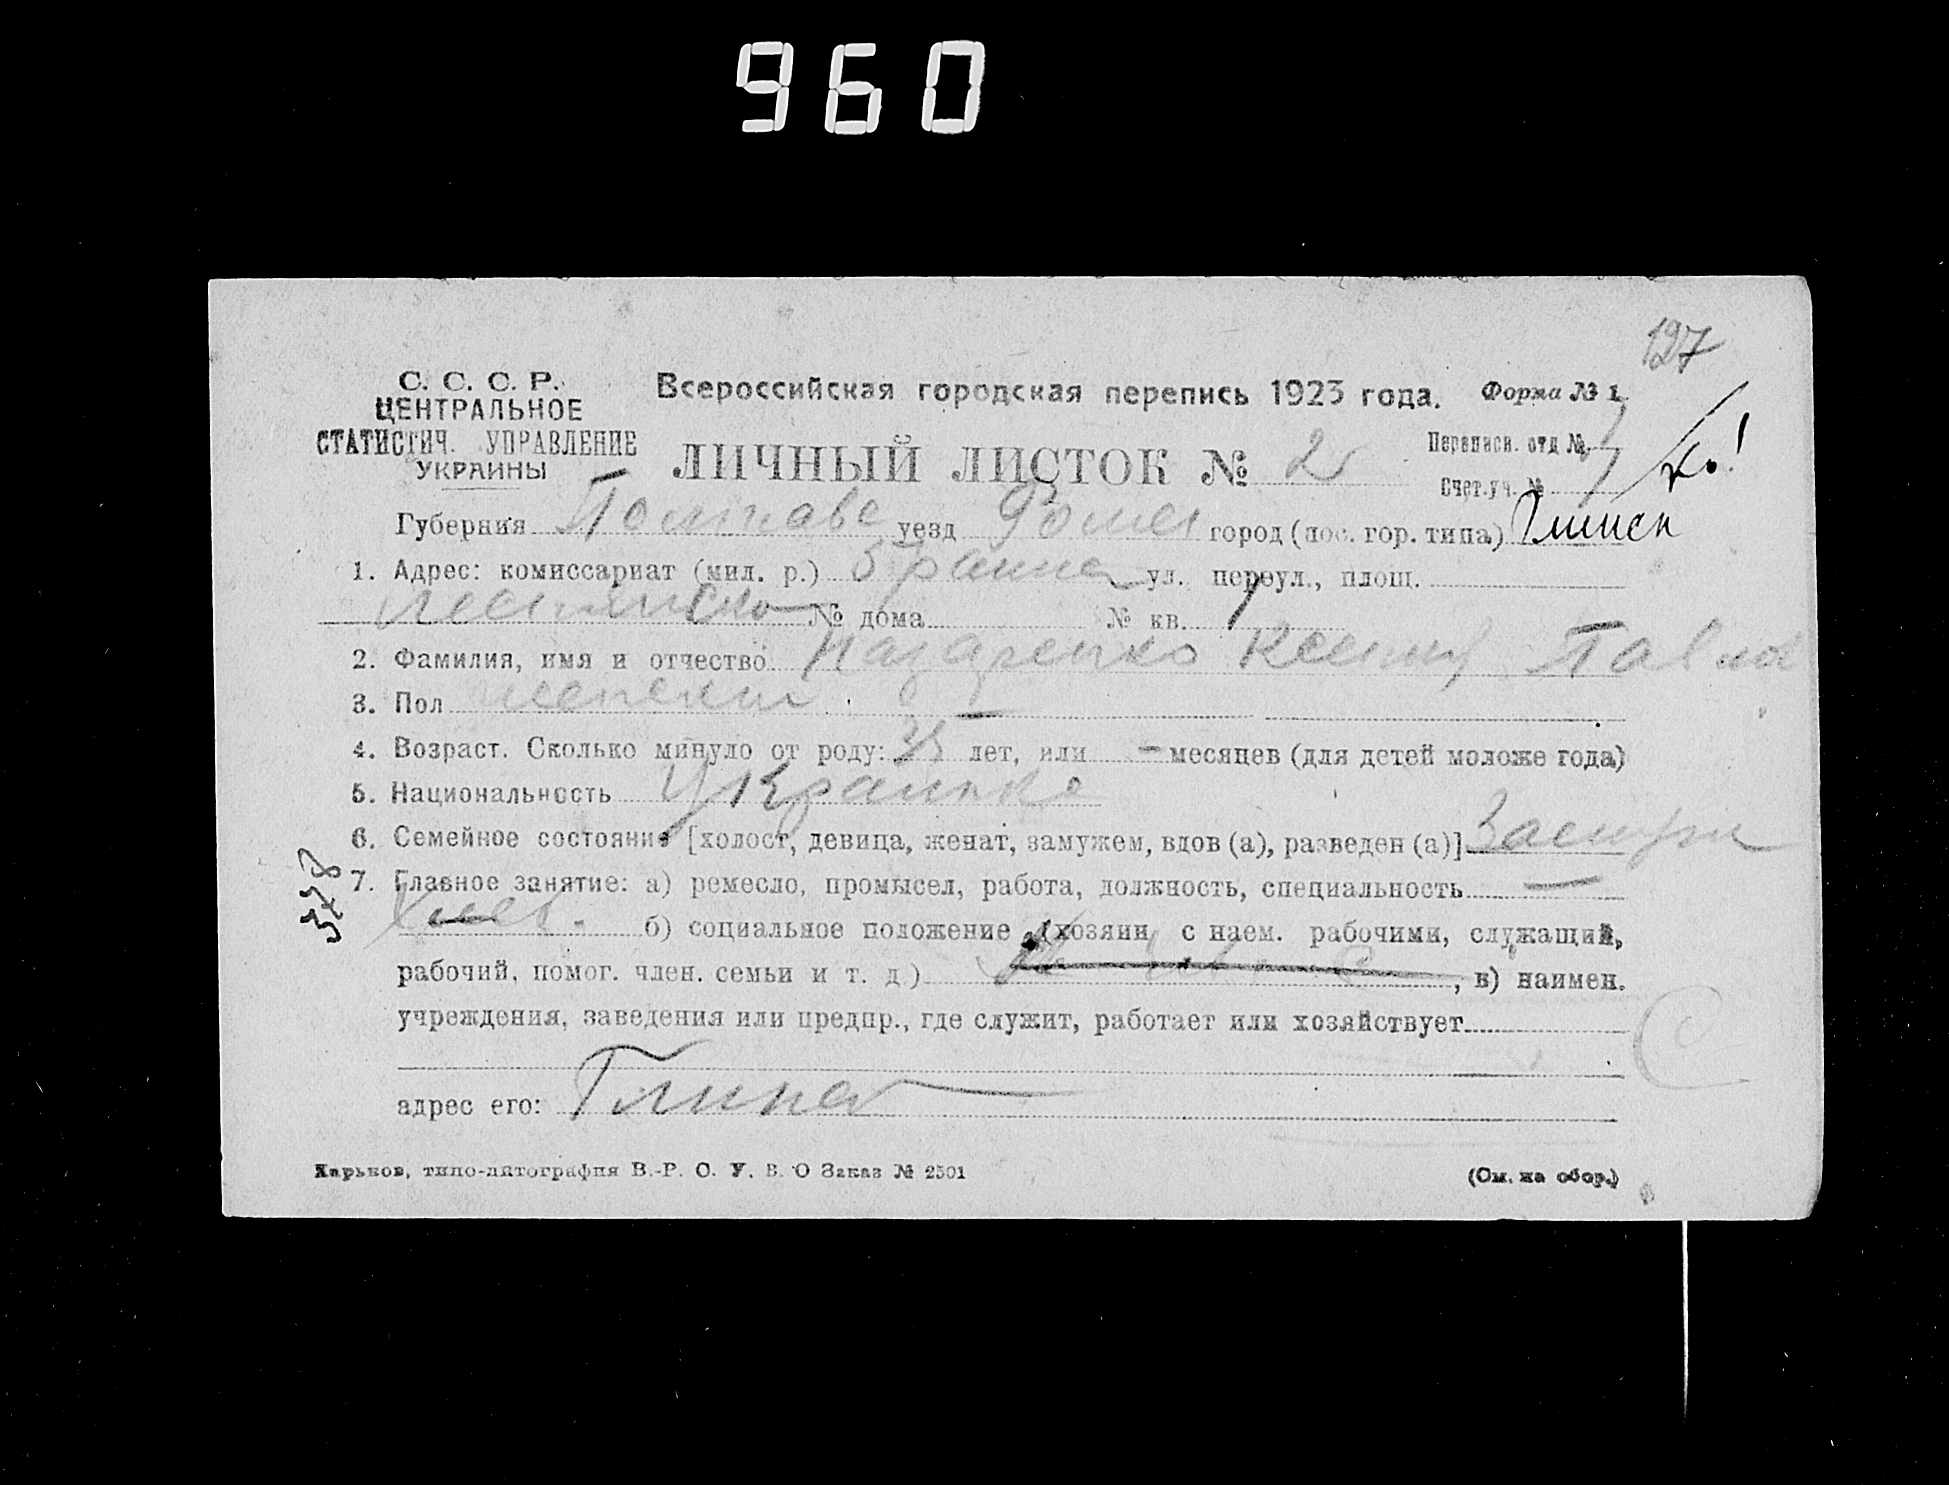 960
127
С. С. С. Р. Всероссийская городская перепись 1923 года. Форма № 1.
ЦЕНТРАЛЬНОЕ
СТАТИСТИЧ. УПРАВЛЕНИЕ
УКРАИНЫ
ЛИЧНЫЙ ЛИСТОК № 2
Переписн. отд №
Счет.уч. №
Губерния Полтаве уезд Ромен город (пос. гор. типа) Глинск
1. Адрес: комиссариат (мил. р.) ул. переул., площ.
№ дома № кв.
2. Фамилия, имя и отчество Назаренко Ксения Павло
3. Пол женский
4. Возраст. Сколько минуло от роду: 35 лет, или — месяцев (для детей моложе года)
5. Национальность Украинка
6. Семейное состояние [холост, девица, женат, замужем, вдов (а), разведен (а)]
378
7. Главное занятие: а) ремесло, промысел, работа, должность, специальность —
б) социальное положение (хозяин с наем. рабочими, служащий,
рабочий, помог. член. семьи и т. д) , в) наимен.
учреждения, заведения или предпр., где служит, работает или хозяйствует
адрес его: Глинск
Харьков, типо-литография В.-Р. С. У. В. О Заказ № 2501 (См. на обор.)